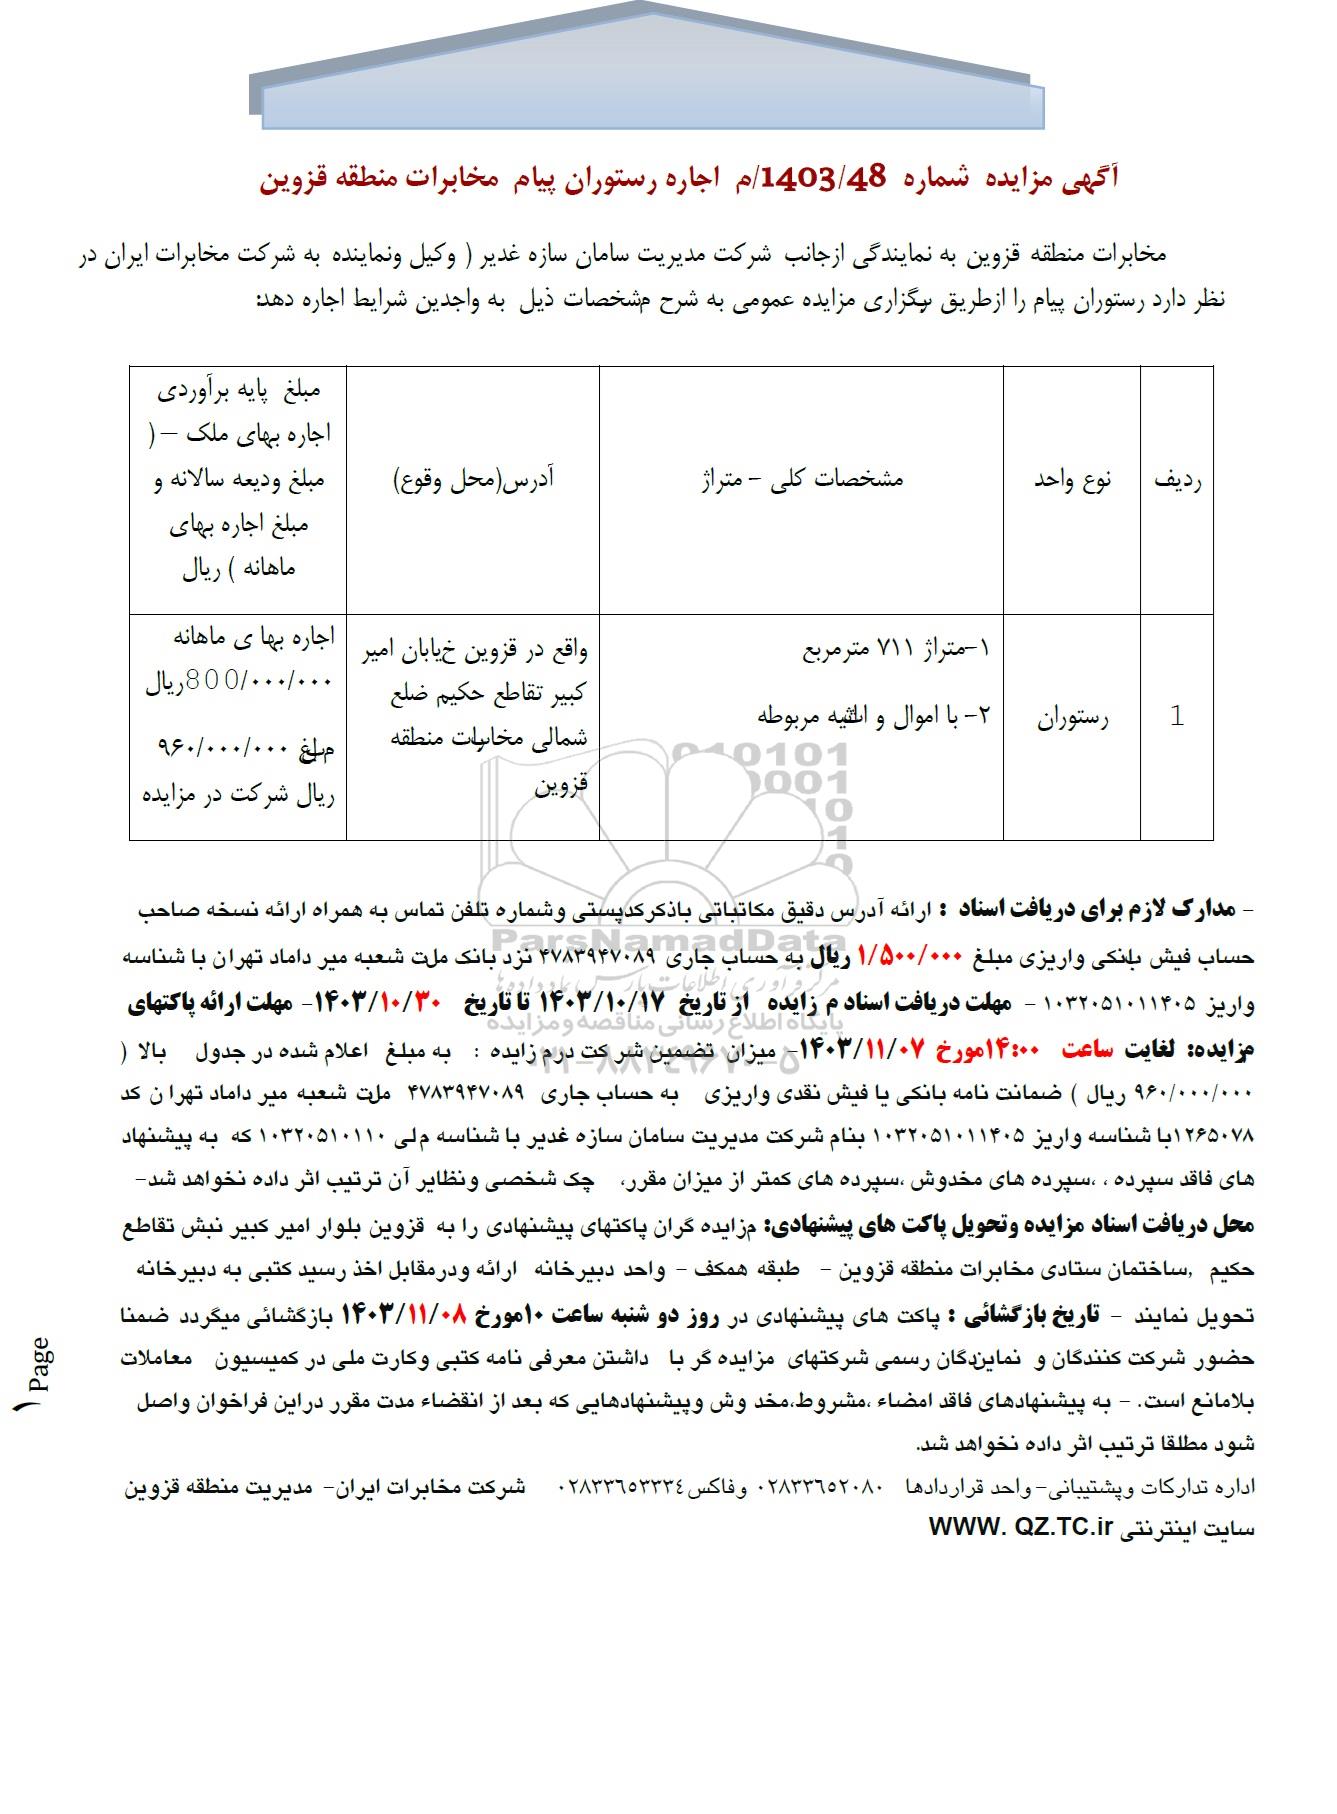 آگهی مزایده شماره 1403/48/م اجاره رستوران پیام مخابرات منطقه قزوین
مخابرات منطقه قزوین به نمایندگی ازجانب شرکت مدیریت سامان سازه غدیر ( وکیل ونماینده به شرکت مخابرات ایران در
نظر دارد رستوران پیام را ازطریق برگزاری مزایده عمومی به شرح مشخصات ذیل به واجدین شرایط اجاره دهد:
ردیف
نوع واحد
مشخصات کلی – متراژ
آدرس(محل وقوع)
مبلغ پایه برآوردی
اجاره بهای ملک – (
مبلغ ودیعه سالانه و
مبلغ اجاره بهای
ماهانه ) ریال
1
رستوران
۱-متراژ ۷۱۱ مترمربع
۲- با اموال و اثاثیه مربوطه
واقع در قزوین خیابان امیر
کبیر تقاطع حکیم ضلع
شمالی مخابرات منطقه
قزوین
اجاره بها ی ماهانه
800/۰۰۰/۰۰۰ریال
مبلغ ۹۶۰/۰۰۰/۰۰۰
ریال شرکت در مزایده
- مدارک لازم برای دریافت اسناد : ارائه آدرس دقیق مکاتباتی باذکرکدپستی وشماره تلفن تماس به همراه ارائه نسخه صاحب
حساب فیش بانکی واریزی مبلغ ۱/۵۰۰/۰۰۰ ریال به حساب جاری ۴۷۸۳۹۴۷۰۸۹ نزد بانک ملت شعبه میر داماد تهران با شناسه
واریز ۱۰۳۲۰۵۱۰۱۱۴۰۵ - مهلت دریافت اسناد م زایده از تاریخ ۱۴۰۳/۱۰/۱۷ تا تاریخ ۱۴۰۳/۱۰/۳۰- مهلت ارائه پاکتهای
مزایده: لغایت ساعت ۱۴:۰۰مورخ ۱۴۰۳/۱۱/۰۷- میزان تضمین شرکت درم زایده : به مبلغ اعلام شده در جدول بالا (
۹۶۰/۰۰۰/۰۰۰ ریال ) ضمانت نامه بانکی یا فیش نقدی واریزی به حساب جاری ۴۷۸۳۹۴۷۰۸۹ ملت شعبه میر داماد تهران کد
۱۲۶۵۰۷۸با شناسه واریز ۱۰۳۲۰۵۱۰۱۱۴۰۵ بنام شرکت مدیریت سامان سازه غدیر با شناسه ملی ۱۰۳۲۰۵۱۰۱۱۰ که به پیشنهاد
های فاقد سپرده ، ،سپرده های مخدوش ،سپرده های کمتر از میزان مقرر، چک شخصی ونظایر آن ترتیب اثر داده نخواهد شد-
محل دریافت اسناد مزایده وتحویل پاکت های پیشنهادی: مزایده گران پاکتهای پیشنهادی را به قزوین بلوار امیر کبیر نبش تقاطع
حکیم ,ساختمان ستادی مخابرات منطقه قزوین - طبقه همکف - واحد دبیرخانه ارائه ودرمقابل اخذ رسید کتبی به دبیرخانه
تحویل نمایند - تاریخ بازگشائی : پاکت های پیشنهادی در روز دو شنبه ساعت ۱۰مورخ ۱۴۰۳/۱۱/۰۸ بازگشائی میگردد ضمنا
حضور شرکت کنندگان و نمایندگان رسمی شرکتهای مزایده گر با داشتن معرفی نامه کتبی وکارت ملی در کمیسیون معاملات
بلامانع است. - به پیشنهادهای فاقد امضاء ،مشروط،مخد وش وپیشنهادهایی که بعد از انقضاء مدت مقرر دراین فراخوان واصل
شود مطلقا ترتیب اثر داده نخواهد شد.
اداره تدارکات وپشتیبانی- واحد قراردادها ۰۲۸۳۳۶۵۲۰۸۰ وفاکس۰۲۸۳۳۶۵۳۳۳۴ شرکت مخابرات ایران- مدیریت منطقه قزوین
سایت اینترنتی WWW. QZ.TC.ir
Page ۱
ParsNamadData
مرکز فرآوری اطلاعات پارس نماد داده ها
پایگاه اطلاع رسانی مناقصه و مزایده